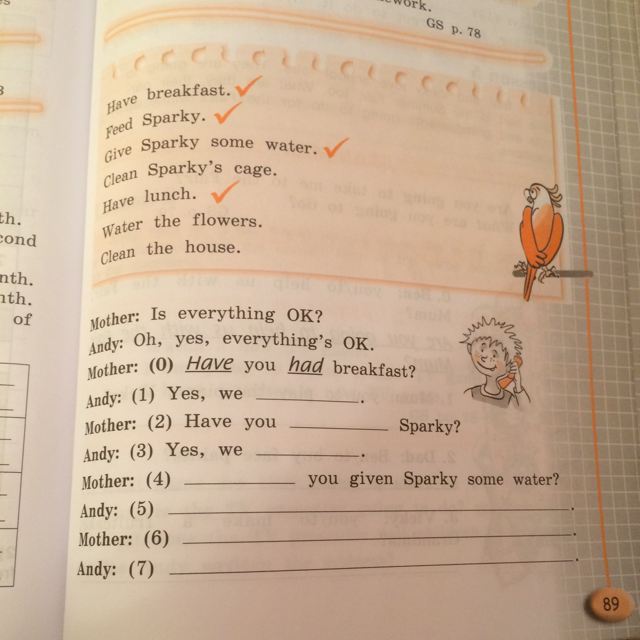 ework.
GS p. 78
Have breakfast. ✓
Feed Sparky. ✓
Give Sparky some water. ✓
Clean Sparky's cage.
Have lunch. ✓
Water the flowers.
Clean the house.
th.
cond
nth.
nth.
of
Mother: Is everything OK?
Andy: Oh, yes, everything's OK.
Mother: (0) Have you had breakfast?
Andy: (1) Yes, we ___________.
Mother: (2) Have you ___________ Sparky?
Andy: (3) Yes, we ___________.
Mother: (4) ___________ you given Sparky some water?
Andy: (5) ___________.
Mother: (6) ___________.
Andy: (7) ___________.
89